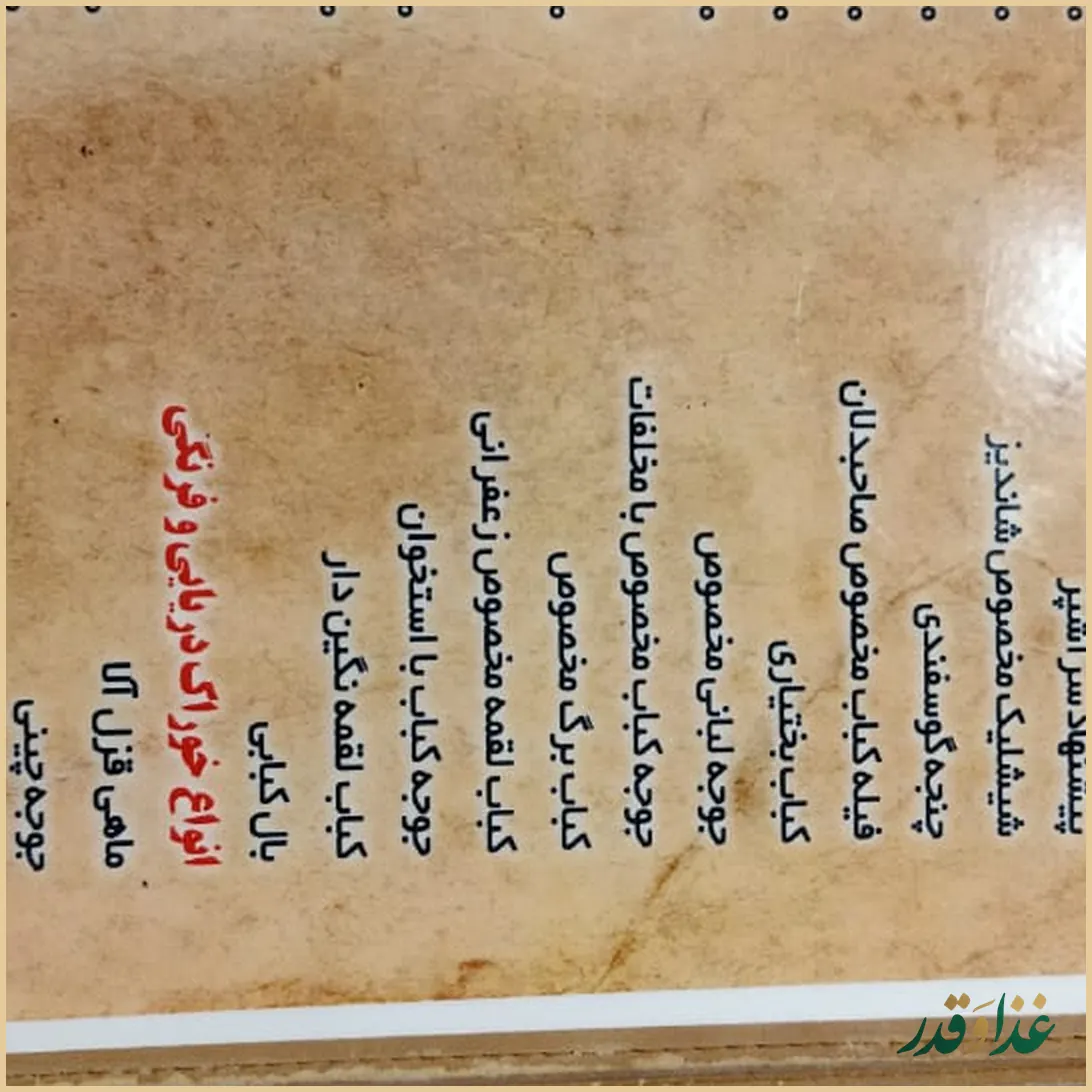 پیشنهاد سر آشپز
شیشلیک مخصوص شاندیز
چنجه گوسفندی
فیله کباب مخصوص صاحبدلان
کباب بختیاری
جوجه لبنانی مخصوص
جوجه کباب مخصوص با مخلفات
کباب برگ مخصوص
کباب لقمه مخصوص زعفرانی
جوجه کباب با استخوان
کباب لقمه نگین دار
بال کبابی
انواع خوراک دریایی و فرنگی
ماهی قزل آلا
جوجه چینی
غذا و قدر